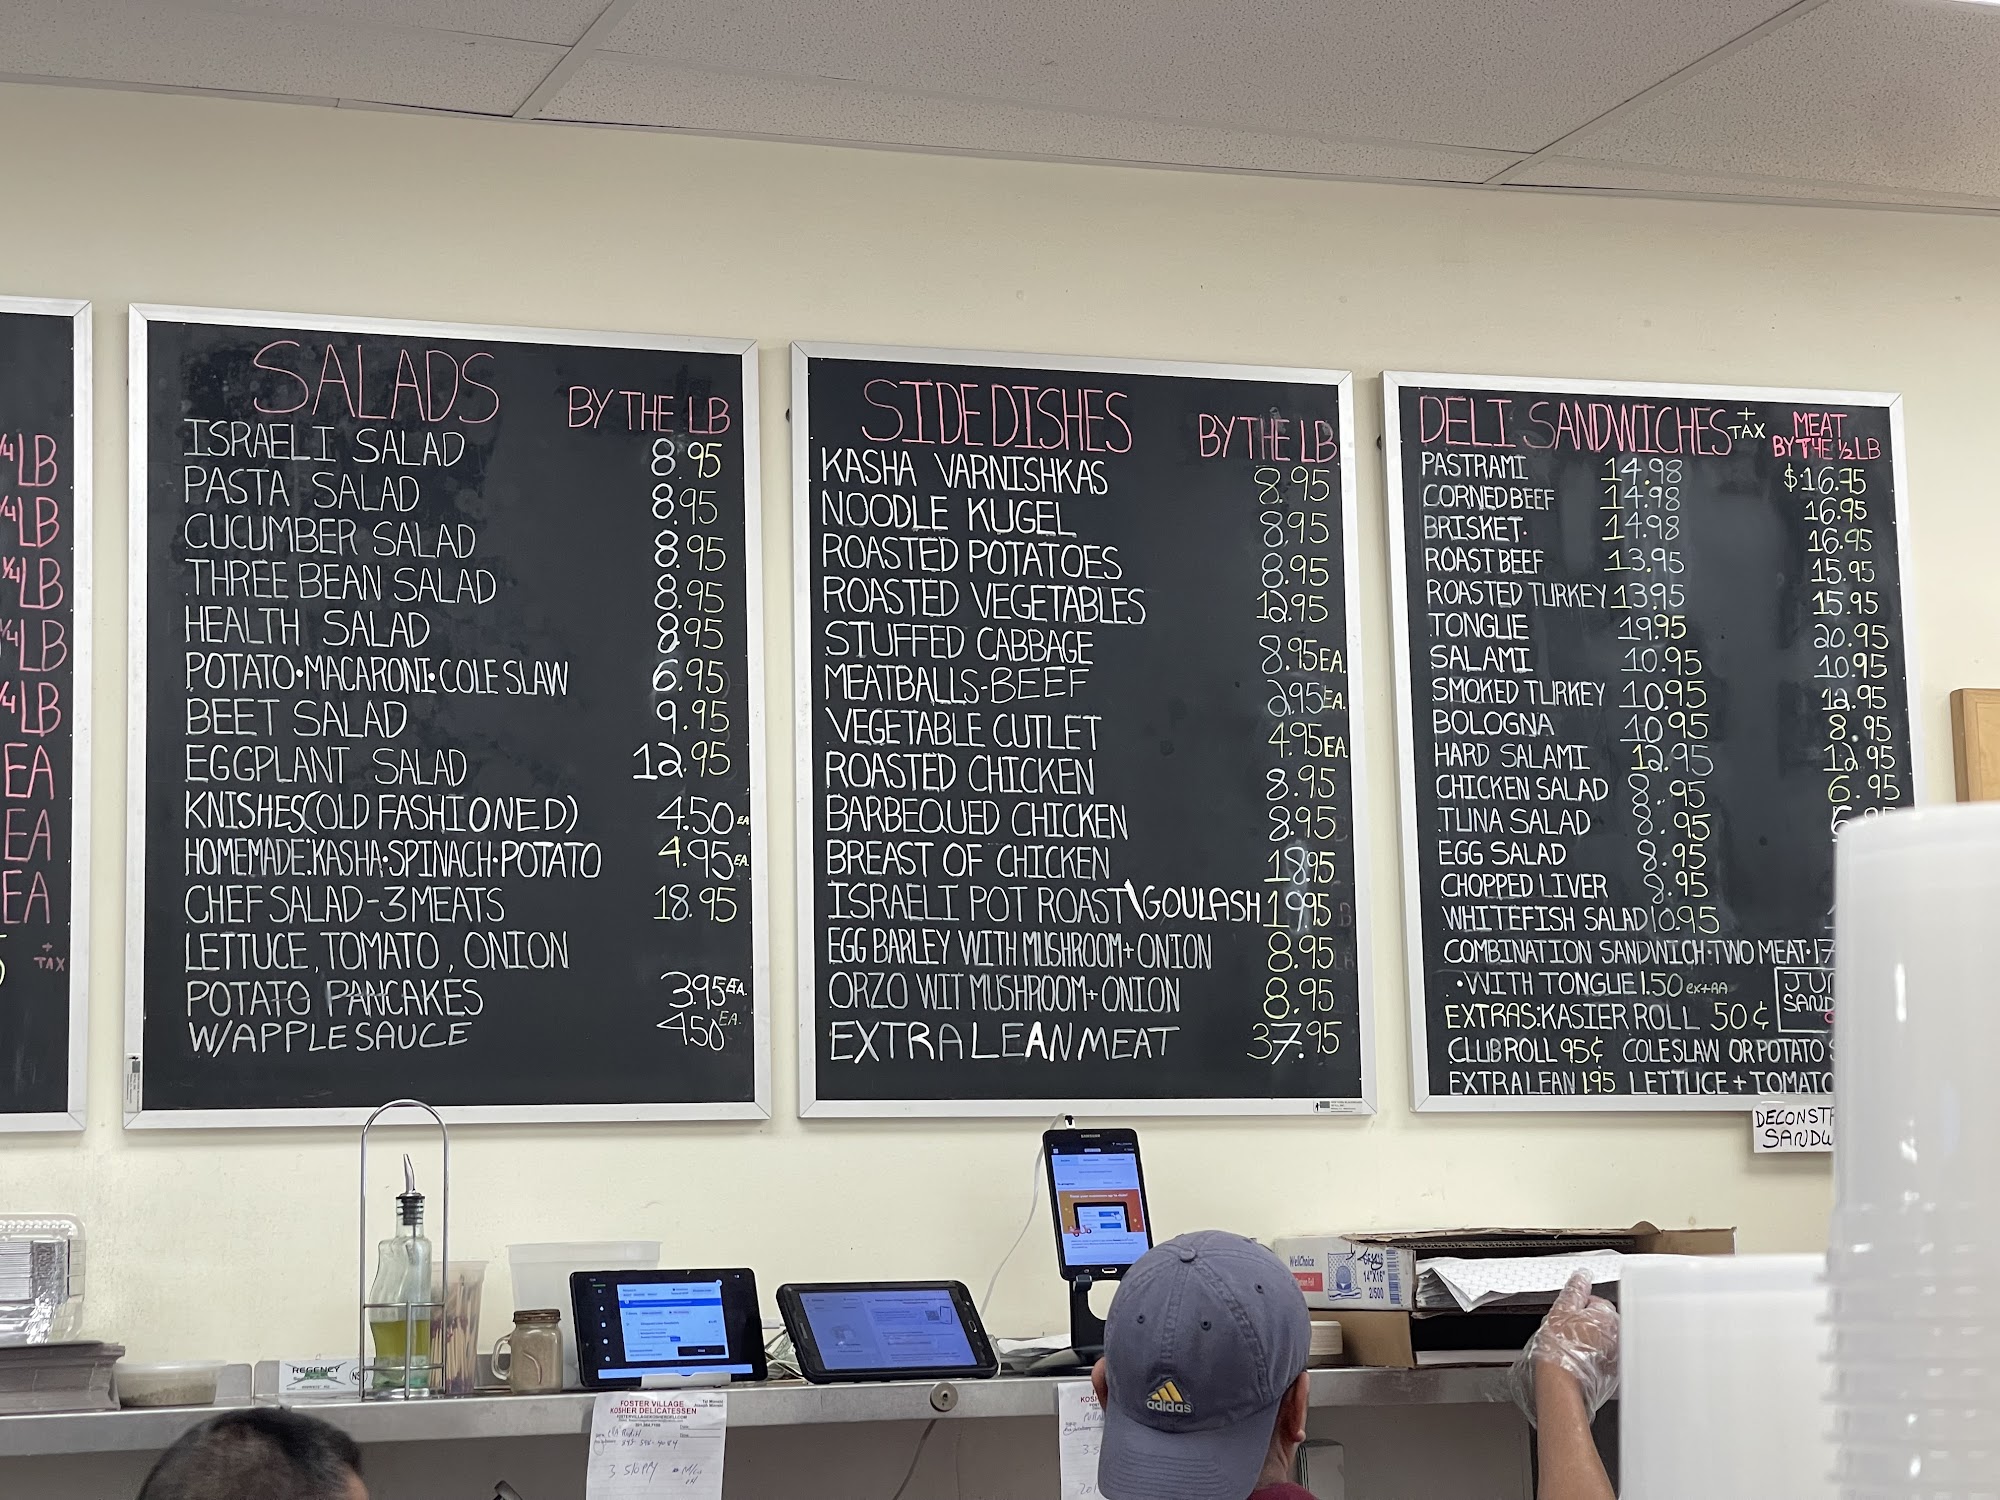 1/4 LB
1/4 LB
1/4 LB
1/4 LB
1/4 LB
EA
EA
EA
+
TAX
SALADS
BY THE LB
ISRAELI SALAD 8.95
PASTA SALAD 8.95
CUCUMBER SALAD 8.95
THREE BEAN SALAD 8.95
HEALTH SALAD 8.95
POTATO•MACARONI•COLE SLAW 6.95
BEET SALAD 9.95
EGGPLANT SALAD 12.95
KNISHES(OLD FASHIONED) 4.50 EA
HOMEMADE:KASHA•SPINACH•POTATO 4.95 EA.
CHEF SALAD-3 MEATS 18.95
LETTUCE, TOMATO, ONION
POTATO PANCAKES 3.95 EA.
W/APPLE SAUCE 4.50 EA.
SIDE DISHES
BY THE LB
KASHA VARNISHKAS 8.95
NOODLE KUGEL 8.95
ROASTED POTATOES 8.95
ROASTED VEGETABLES 12.95
STUFFED CABBAGE 8.95 EA.
MEATBALLS-BEEF 2.95 EA.
VEGETABLE CUTLET 4.95 EA.
ROASTED CHICKEN 8.95
BARBEQUED CHICKEN 8.95
BREAST OF CHICKEN 18.95
ISRAELI POT ROAST\GOULASH 19.95
EGG BARLEY WITH MUSHROOM+ONION 8.95
ORZO WIT MUSHROOM+ONION 8.95
EXTRA LEAN MEAT 37.95
DELI SANDWICHES + TAX
MEAT
BY THE 1/2 LB
PASTRAMI 14.98 $16.75
CORNED BEEF 14.98 16.95
BRISKET• 14.98 16.95
ROAST BEEF 13.95 15.95
ROASTED TURKEY 13.95 15.95
TONGUE 19.95 20.95
SALAMI 10.95 10.95
SMOKED TURKEY 10.95 12.95
BOLOGNA 10.95 8.95
HARD SALAMI 12.95 12.95
CHICKEN SALAD 8.95 6.95
TUNA SALAD 8.95
EGG SALAD 8.95
CHOPPED LIVER 8.95
WHITEFISH SALAD 10.95
COMBINATION SANDWICH•TWO MEAT•17
•WITH TONGUE 1.50 extRA
EXTRAS:KASIER ROLL 50¢
CLUB ROLL 95¢ COLE SLAW OR POTATO
EXTRA LEAN 1.95 LETTUCE + TOMATO
SAMSUNG
WellChoice
14"X16"
2/500
REGENCY
adidas
FOSTER VILLAGE
KOSHER DELICATESSEN
3 SloPPY